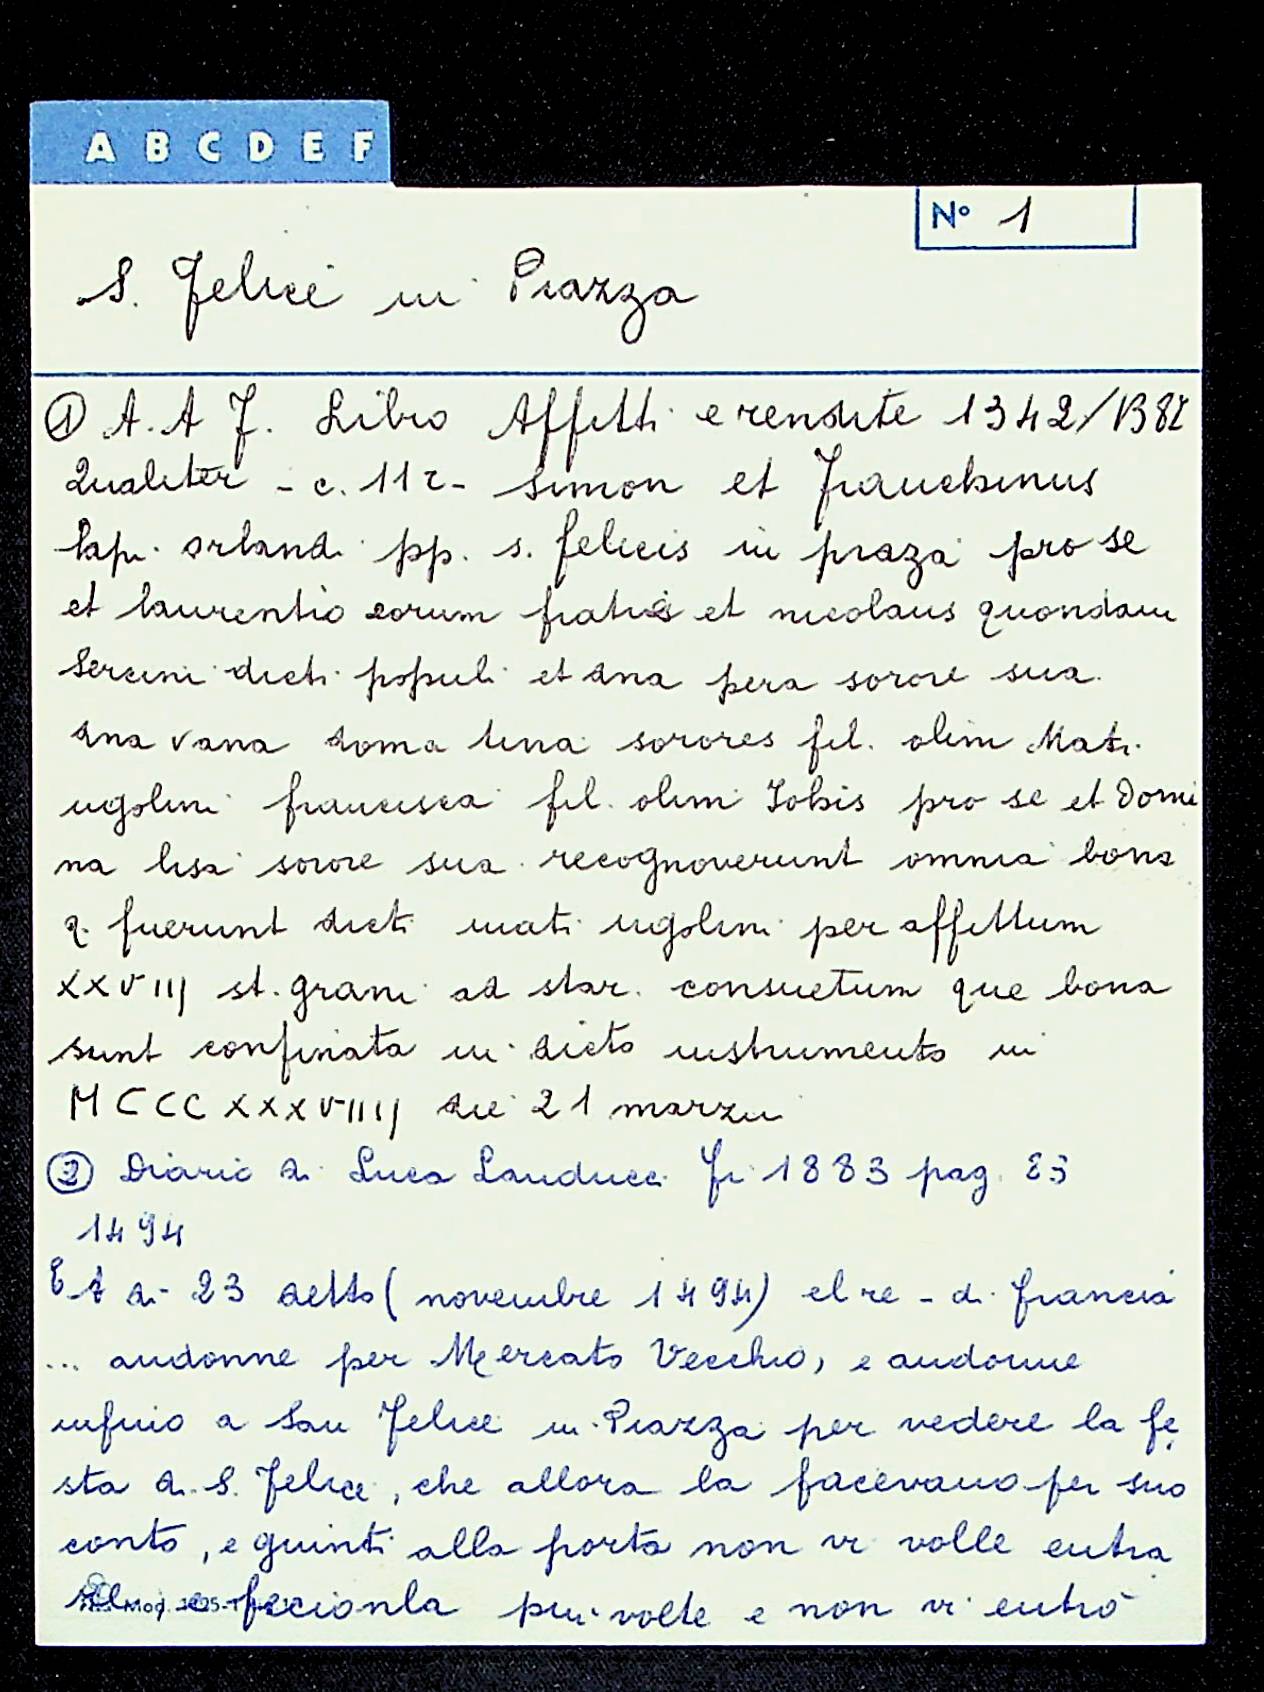 A B C D E F
N° 1
S. Felice in Piazza
① A. A F. Libro Affitti e rendite 1342/
Qualiter - c. 11 r - simon et franchinus
lapi orlandi pp. s. felicis in piaza pro se
et laurentio eorum fratris et nicolaus quondam
Sercini dicti populi et dna pera sorore sua.
dna vana doma tina sorores fil. olim Mati.
ugolini francisca fil. olim Iohis pro se et Domi
na lisa sorore sua recognoverunt omnia bona
q. fuerunt dicti mati ugolini per affittum
XXVIIJ st. grani ad star. consuetum que bona
sunt confinata in dicto instrumento in
MCCCXXXVIIIJ die 21 marzii
② Diario di Luca Landucci Fi 1883 pag.
1494
E A di 23 detto (novembre 1494) el re - di francia
... andonne per Mercato Vecchio, e andonne
infino a San Felice in Piazza per vedere la fe
sta di S. Felice, che allora la facevano per suo
conto, e guinti alla porta non vi volle entra
e feccionla piu volte e non vi entrò